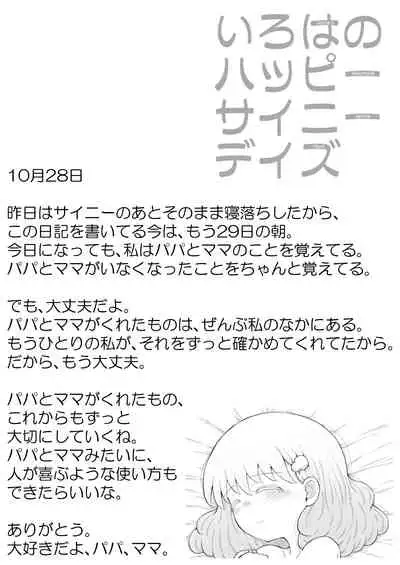 いろはの
ハッピー
サイニー
デイズ
10月28日
昨日はサイニーのあとそのまま寝落ちしたから、
この日記を書いてる今は、もう29日の朝。
今日になっても、私はパパとママのことを覚えてる。
パパとママがいなくなったことをちゃんと覚えてる。
でも、大丈夫だよ。
パパとママがくれたものは、ぜんぶ私のなかにある。
もうひとりの私が、それをずっと確かめてくれてたから。
だから、もう大丈夫。
パパとママがくれたもの、
これからもずっと
大切にしていくね。
パパとママみたいに、
人が喜ぶような使い方も
できたらいいな。
ありがとう。
大好きだよ、パパ、ママ。